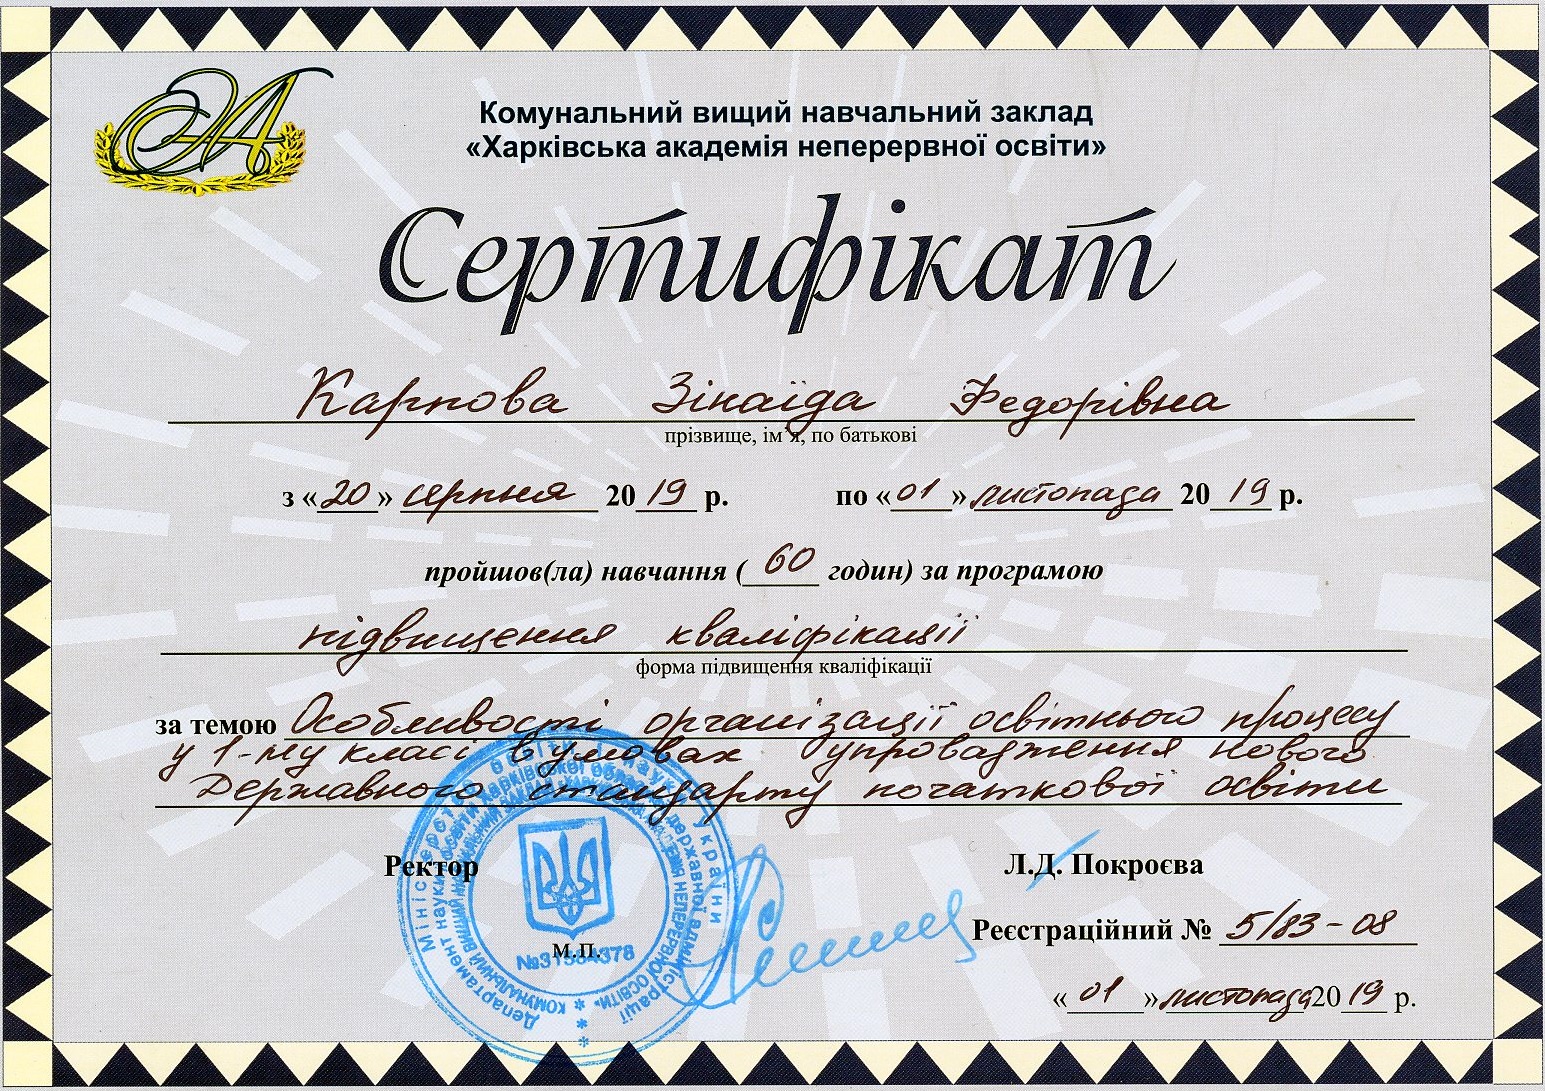 Комунальний вищий навчальний заклад
«Харківська академія неперервної освіти»
Сертифікат
Карпова Зінаїда Федорівна
прізвище, ім'я, по батькові
з «20» серпня 2019 р. по «01» листопада 2019 р.
пройшов(ла) навчання (60 годин) за програмою
підвищення кваліфікації
форма підвищення кваліфікації
за темою Особливості організації освітнього процесу
у 1-му класі в умовах упровадження нового
Державного стандарту початкової освіти
Ректор Л.Д. Покроєва
Реєстраційний № 5/83-08
М.П.
№31584378
Міністерство освіти і науки України
Департамент науки і освіти Харківської обласної державної адміністрації
КОМУНАЛЬНИЙ ВИЩИЙ НАВЧАЛЬНИЙ ЗАКЛАД
НЕПЕРЕРВНОЇ ОСВІТИ
«01» листопада 2019 р.